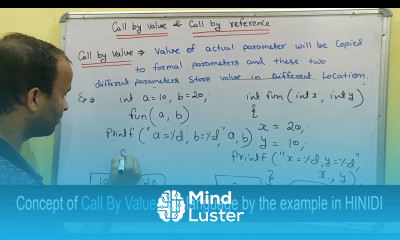 Call by value & Call by reference
Call by value → Value of actual parameter will be Copied
to formal parameters and these two
different parameters Store value in Different Location.
Ex→ int a=10, b=20, int fun(int x, int y)
fun(a, b) {
Printf("a=%d, b=%d", a, b) x = 20,
y = 10;
Printf("x=%d, y=%d",
x, y);
}
Mind
Luster
Concept of Call By Value by the example in HINIDI